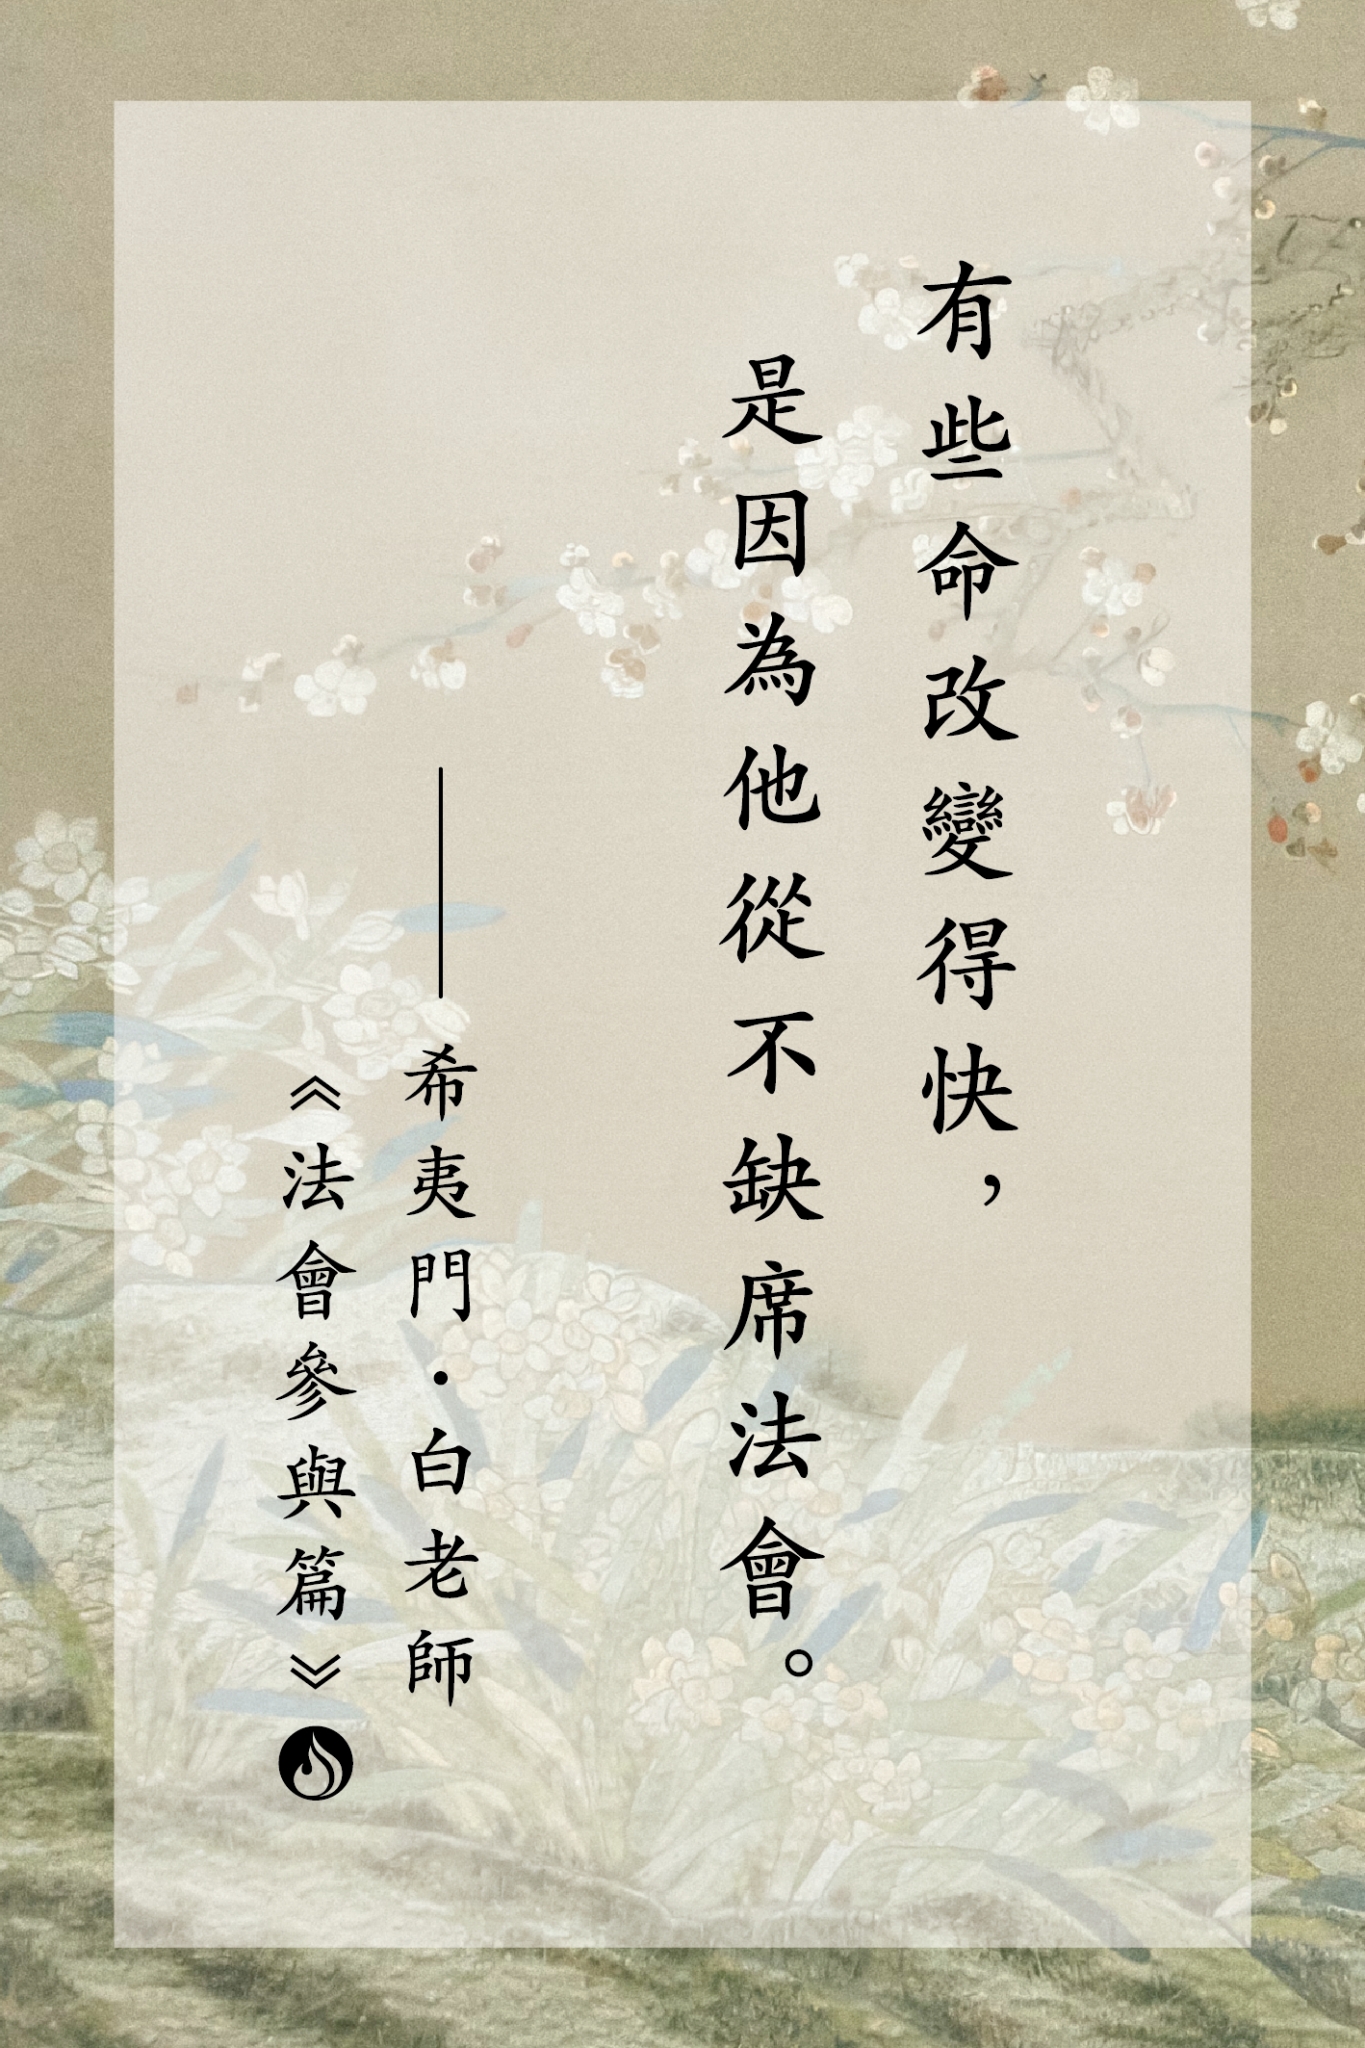 有些命改變得快，
是因為他從不缺席法會。
——希夷門·白老師
《法會參與篇》